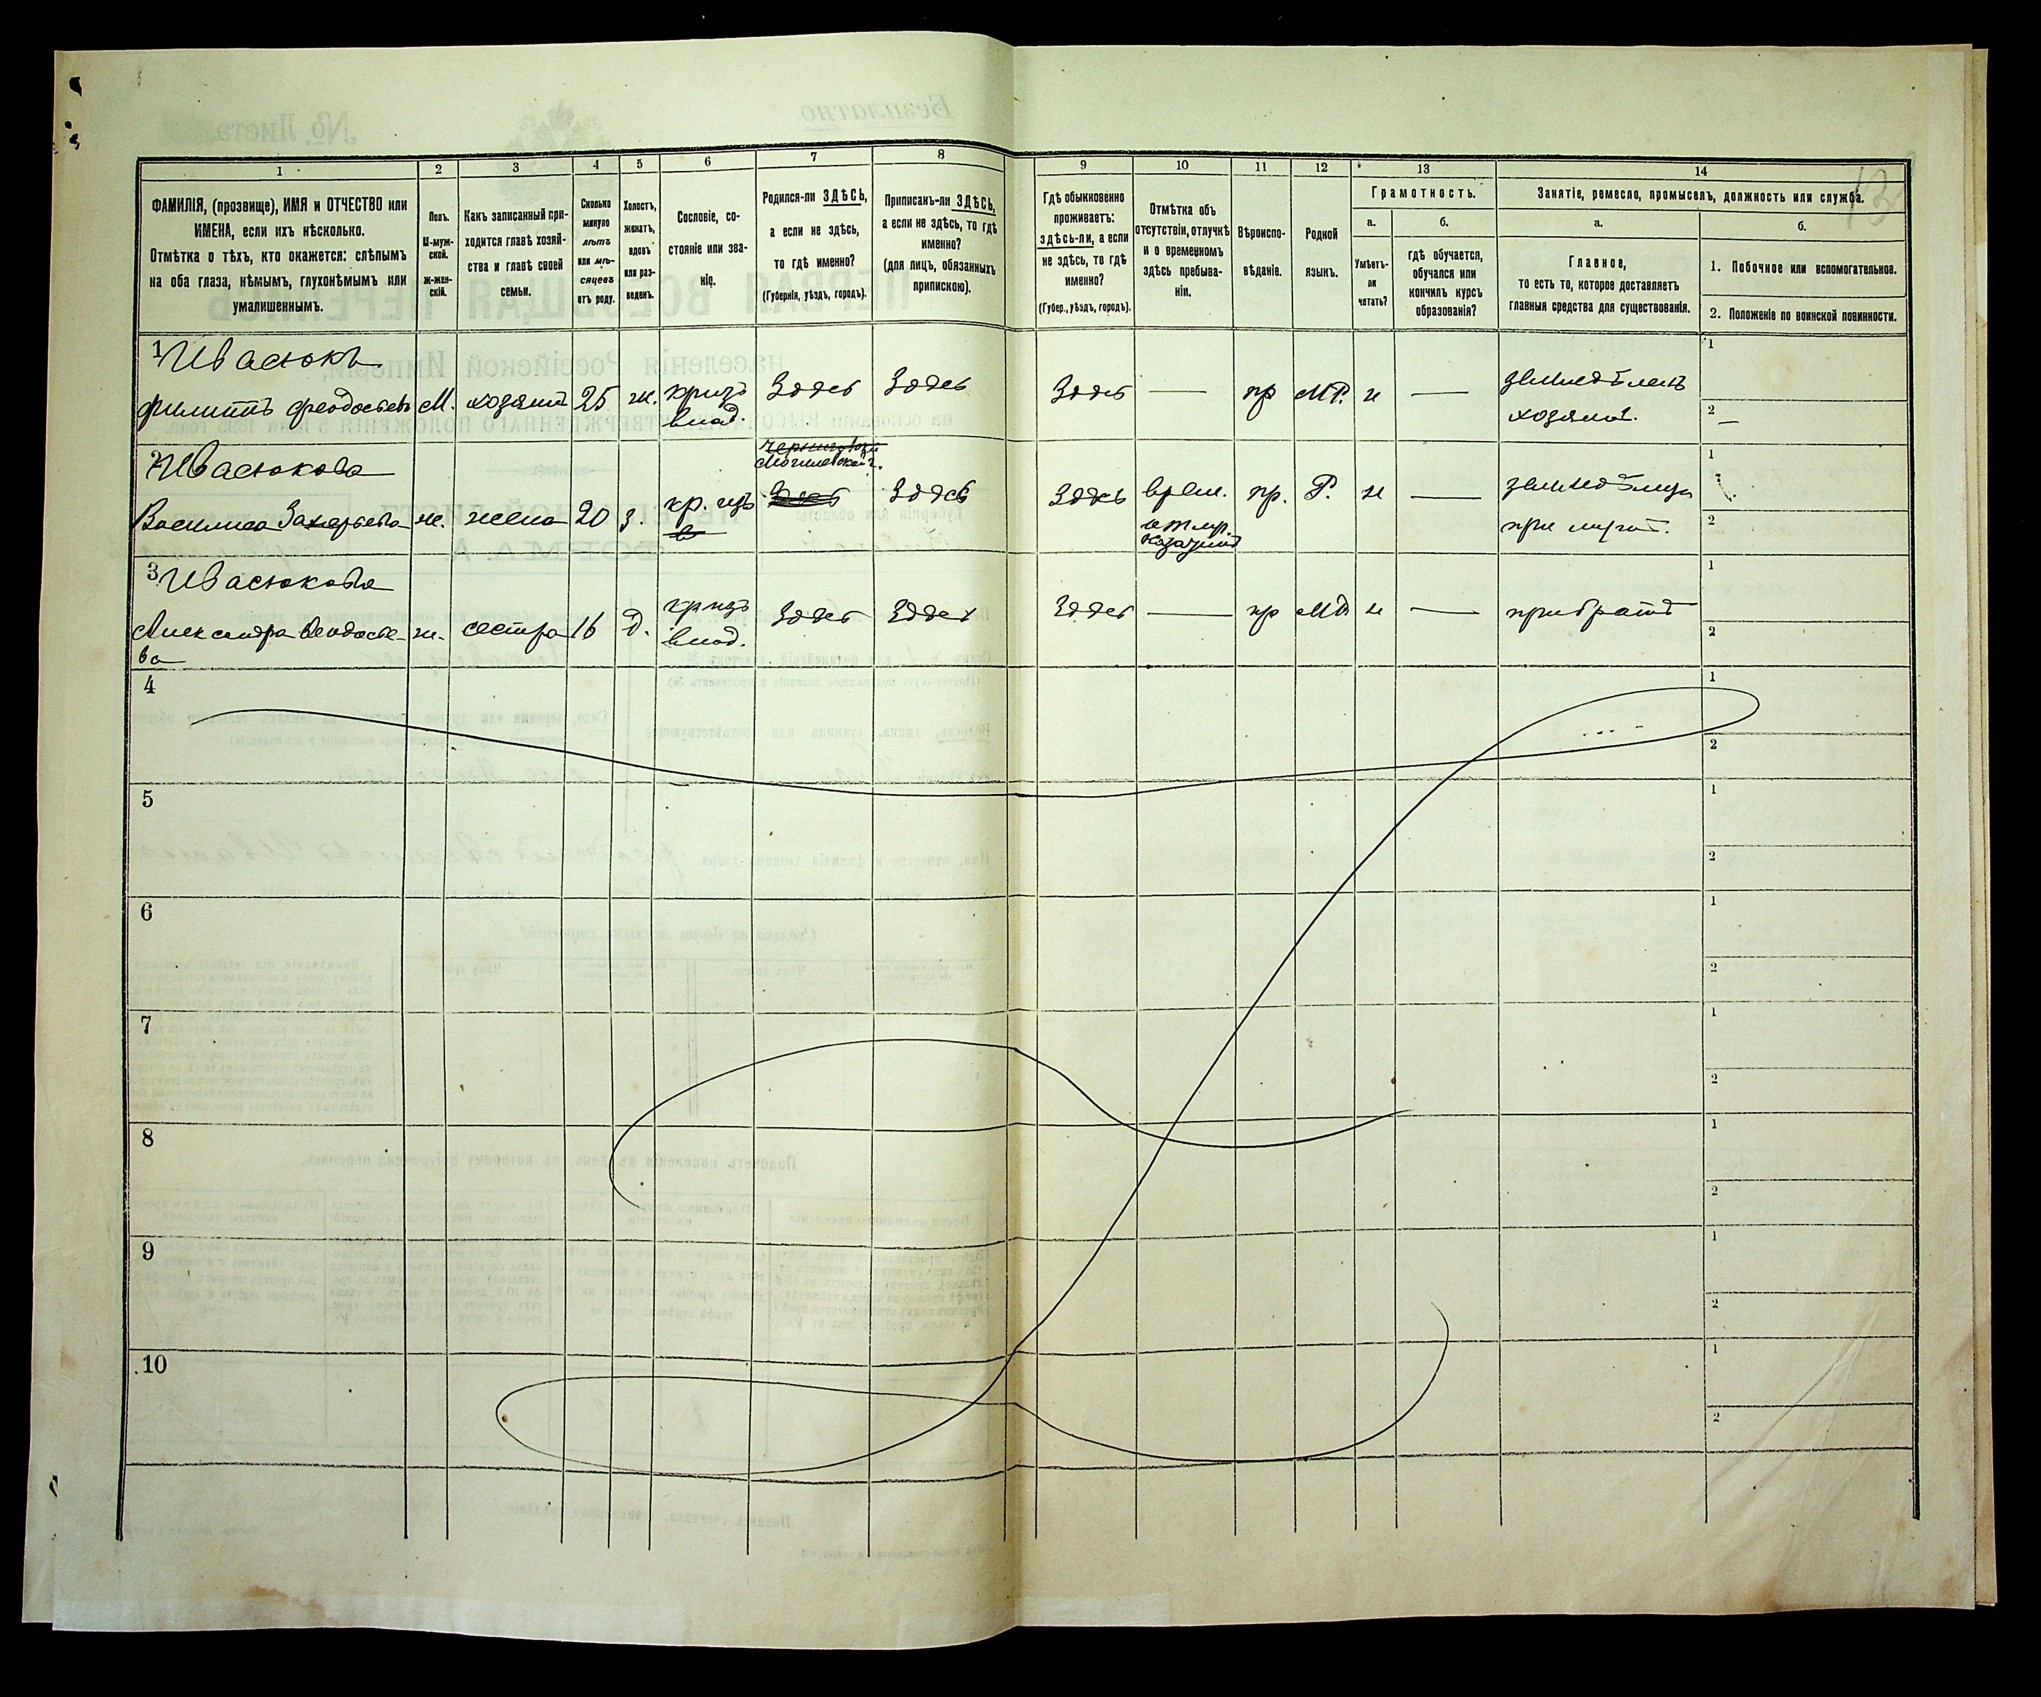 13
1 2 3 4 5 6 7 8 9 10 11 12 13 14
ФАМИЛІЯ, (прозвище), ИМЯ и ОТЧЕСТВО или
ИМЕНА, если ихъ нѣсколько.
Отмѣтка о тѣхъ, кто окажется: слѣпымъ
на оба глаза, нѣмымъ, глухонѣмымъ или
умалишеннымъ.
Полъ.
М-муж-
ской.
Ж-жен-
скій.
Какъ записанный при-
ходится главѣ хозяй-
ства и главѣ своей
семьи.
Сколько
минуло
лѣтъ
или мѣ-
сяцевъ
отъ роду.
Холостъ,
женатъ,
вдовъ
или раз-
веденъ.
Сословіе, со-
стояніе или зва-
ніе.
Родился-ли ЗДѢСЬ,
а если не здѣсь,
то гдѣ именно?
(Губернія, уѣздъ, городъ).
Приписанъ-ли ЗДѢСЬ,
а если не здѣсь, то гдѣ
именно?
(для лицъ, обязанныхъ
припискою).
Гдѣ обыкновенно
проживаетъ:
здѣсь-ли, а если
не здѣсь, то гдѣ
именно?
(Губер., уѣздъ, городъ).
Отмѣтка объ
отсутствіи, отлучкѣ
и о временномъ
здѣсь пребыва-
ніи.
Вѣроиспо-
вѣданіе.
Родной
языкъ.
Грамотность.
а.
Умѣетъ-
ли
читать?
б.
гдѣ обучается,
обучался или
кончилъ курсъ
образованія?
Занятіе, ремесло, промыселъ, должность или служба.
а.
Главное,
то есть то, которое доставляетъ
главныя средства для существованія.
б.
1. Побочное или вспомогательное.
2. Положеніе по воинской повинности.
1 Ивасюкъ
Филиппъ Феодосьевъ М. хозяинъ 25 ж. кр изъ Здѣсь Здѣсь Здѣсь — пр МР. н — земледѣлецъ 1
влад. хозяинъ. 2 —
2 Ивасюкова
Могилевской г.
Василиса Захарьева ж. жена 20 з. кр. изъ Здѣсь Здѣсь Здѣсь врем. пр. Р. н — 1
в при мужѣ. 2
3 Ивасюкова
Александра Ѳеодосье- ж. сестра 16 д. кр изъ Здѣсь Здѣсь Здѣсь — пр МР н — при братѣ 1
ва влад. 2
4 1
2
5 1
2
6 1
2
7 1
2
8 1
2
9 1
2
10 1
2